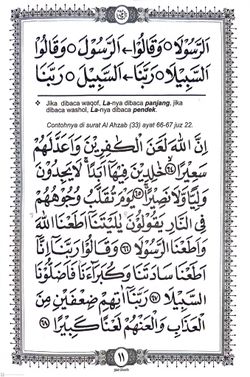 الرَّسُولَا۠ ○ وَقَالُوْا ← الرَّسُوْلَ ○ وَقَالُوْا
السَّبِيْلَا۠ ○ رَبَّنَا ← السَّبِيْلَ ○ رَبَّنَا
❖ Jika dibaca waqof, La-nya dibaca panjang, jika
dibaca washol, La-nya dibaca pendek.
Contohnya di surat Al Ahzab (33) ayat 66-67 juz 22.
اِنَّ اللّٰهَ لَعَنَ الْكٰفِرِيْنَ وَاَعَدَّ لَهُمْ
سَعِيْرًا ۙ٦٤ خٰلِدِيْنَ فِيْهَآ اَبَدًا ۚ لَا يَجِدُوْنَ
وَلِيًّا وَّلَا نَصِيْرًا ۚ٦٥ يَوْمَ تُقَلَّبُ وُجُوْهُهُمْ
فِى النَّارِ يَقُوْلُوْنَ يٰلَيْتَنَآ اَطَعْنَا اللّٰهَ
وَاَطَعْنَا الرَّسُوْلَا۠ ٦٦ وَقَالُوْا رَبَّنَآ اِنَّآ
اَطَعْنَا سَادَتَنَا وَكُبَرَاۤءَنَا فَاَضَلُّوْنَا
السَّبِيْلَا۠ ٦٧ رَبَّنَآ اٰتِهِمْ ضِعْفَيْنِ مِنَ
الْعَذَابِ وَالْعَنْهُمْ لَعْنًا كَبِيْرًا ٦٨
١١